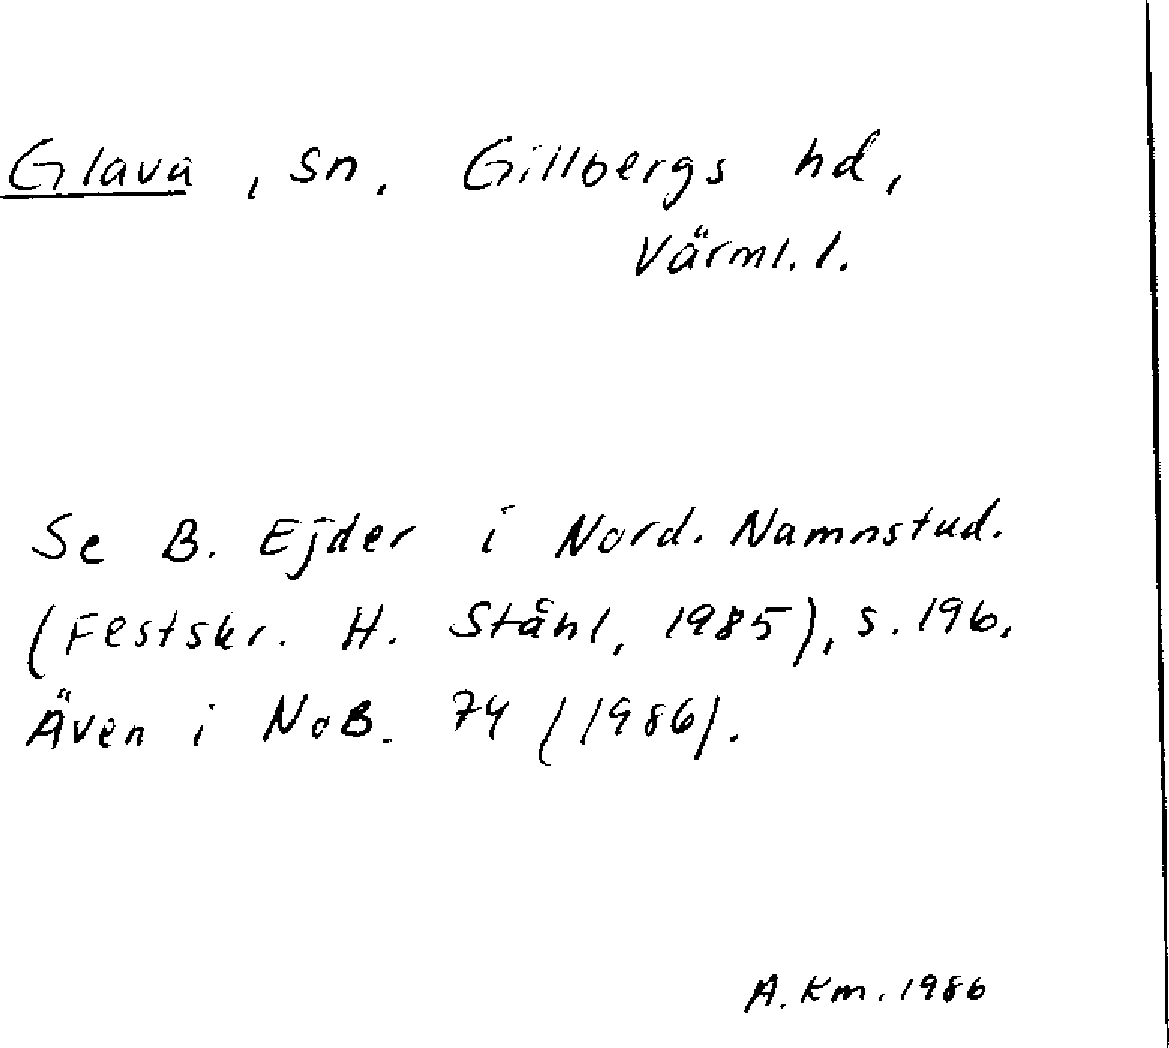 Glava, sn, Gillbergs hd,
Värml. l.
Se B. Ejder i Nord. Namnstud.
(Festskr. H. Ståhl, 1985), s. 196.
Även i NoB. 74 (1986).
A. Km. 1986